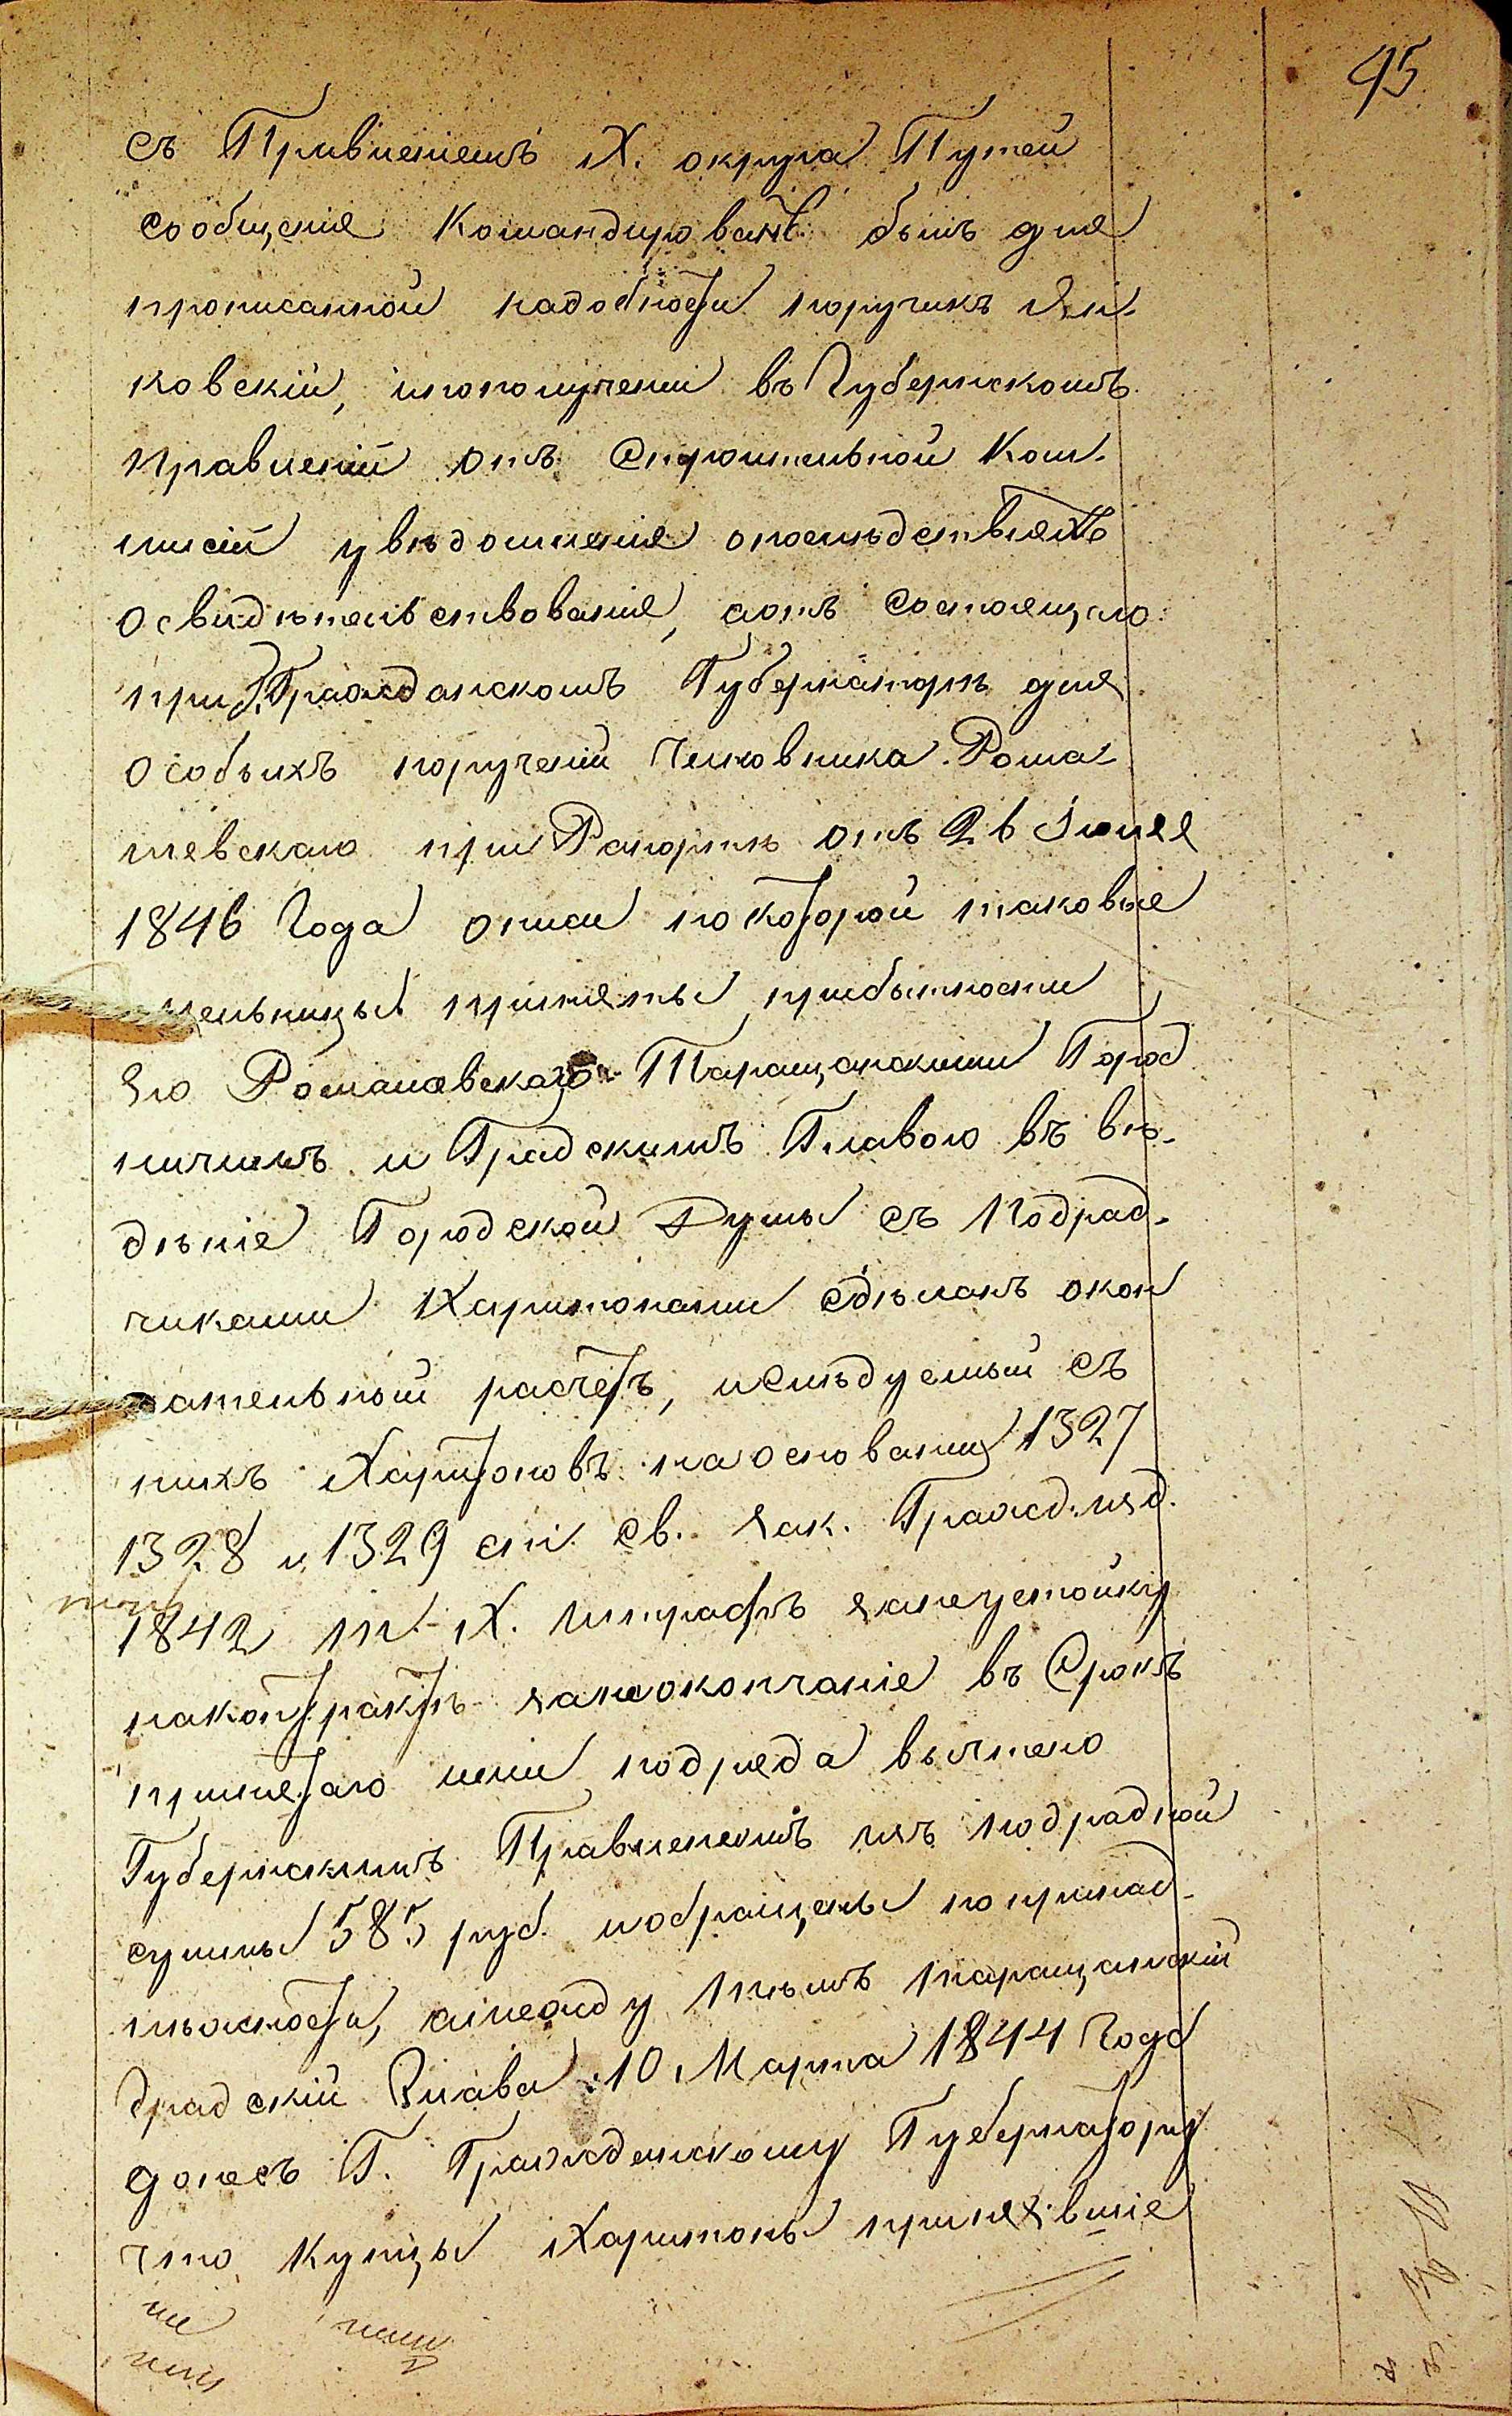 95
съ Правленіемъ X. округа Путей
сообщенія командированъ былъ для
прописанной надобности поручикъ Ян-
ковскій, ипополученіи въ Губернскомъ
правленій отъ Строительной Ком-
мисій увѣдомленія опослѣдствіяхъ
освидѣтельствованія, аотъ состоящаго
при Г. Гражданскомъ Губернаторѣ для
особыхъ порученій Чиновника Рома-
невскаго при Рапортѣ отъ 26 Іюня
1846 Года описи покоторой таковые
мельницы приняты прибытности
Его Романовскаго Таращанскими Город
ничимъ и Градскимъ Главою въ вѣ-
дѣніе Городской Думы съ Подряд-
чиками Харитонами сдѣланъ окон
чательный расчетъ, ислѣдуемый съ
нихъ Харитоновъ наоснованіи 1327
1328 и 1329 ст. св. Зак. Гражд. изд.
1842 т. X. штрафъ занеустойку
поконтракту занеокончаніе въ Срокъ
принятаго ими подряда вычтено
Губернскимъ Правленіемъ изъ подрядной
суммы 585 руб. иобращены попринад-
лѣжности, амежду тѣмъ таращанскій
градскій Глава 10 Марта 1844 Года
донесъ Г. Гражданскому Губернатору
что купцы Харитоны принявшіе